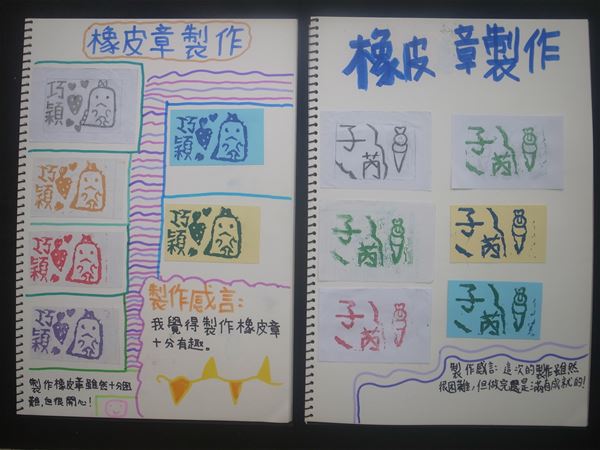 橡皮章製作
巧
穎
巧
穎
巧
穎
巧
穎
巧
穎
巧
穎
製作感言:
我覺得製作橡皮章
十分有趣。
製作橡皮章雖然十分困
難,但很開心!
橡皮章製作
子
芮
子
芮
子
芮
子
芮
子
芮
子
芮
製作感言:這次的製作雖然
很困難,但做完還是滿有成就的!